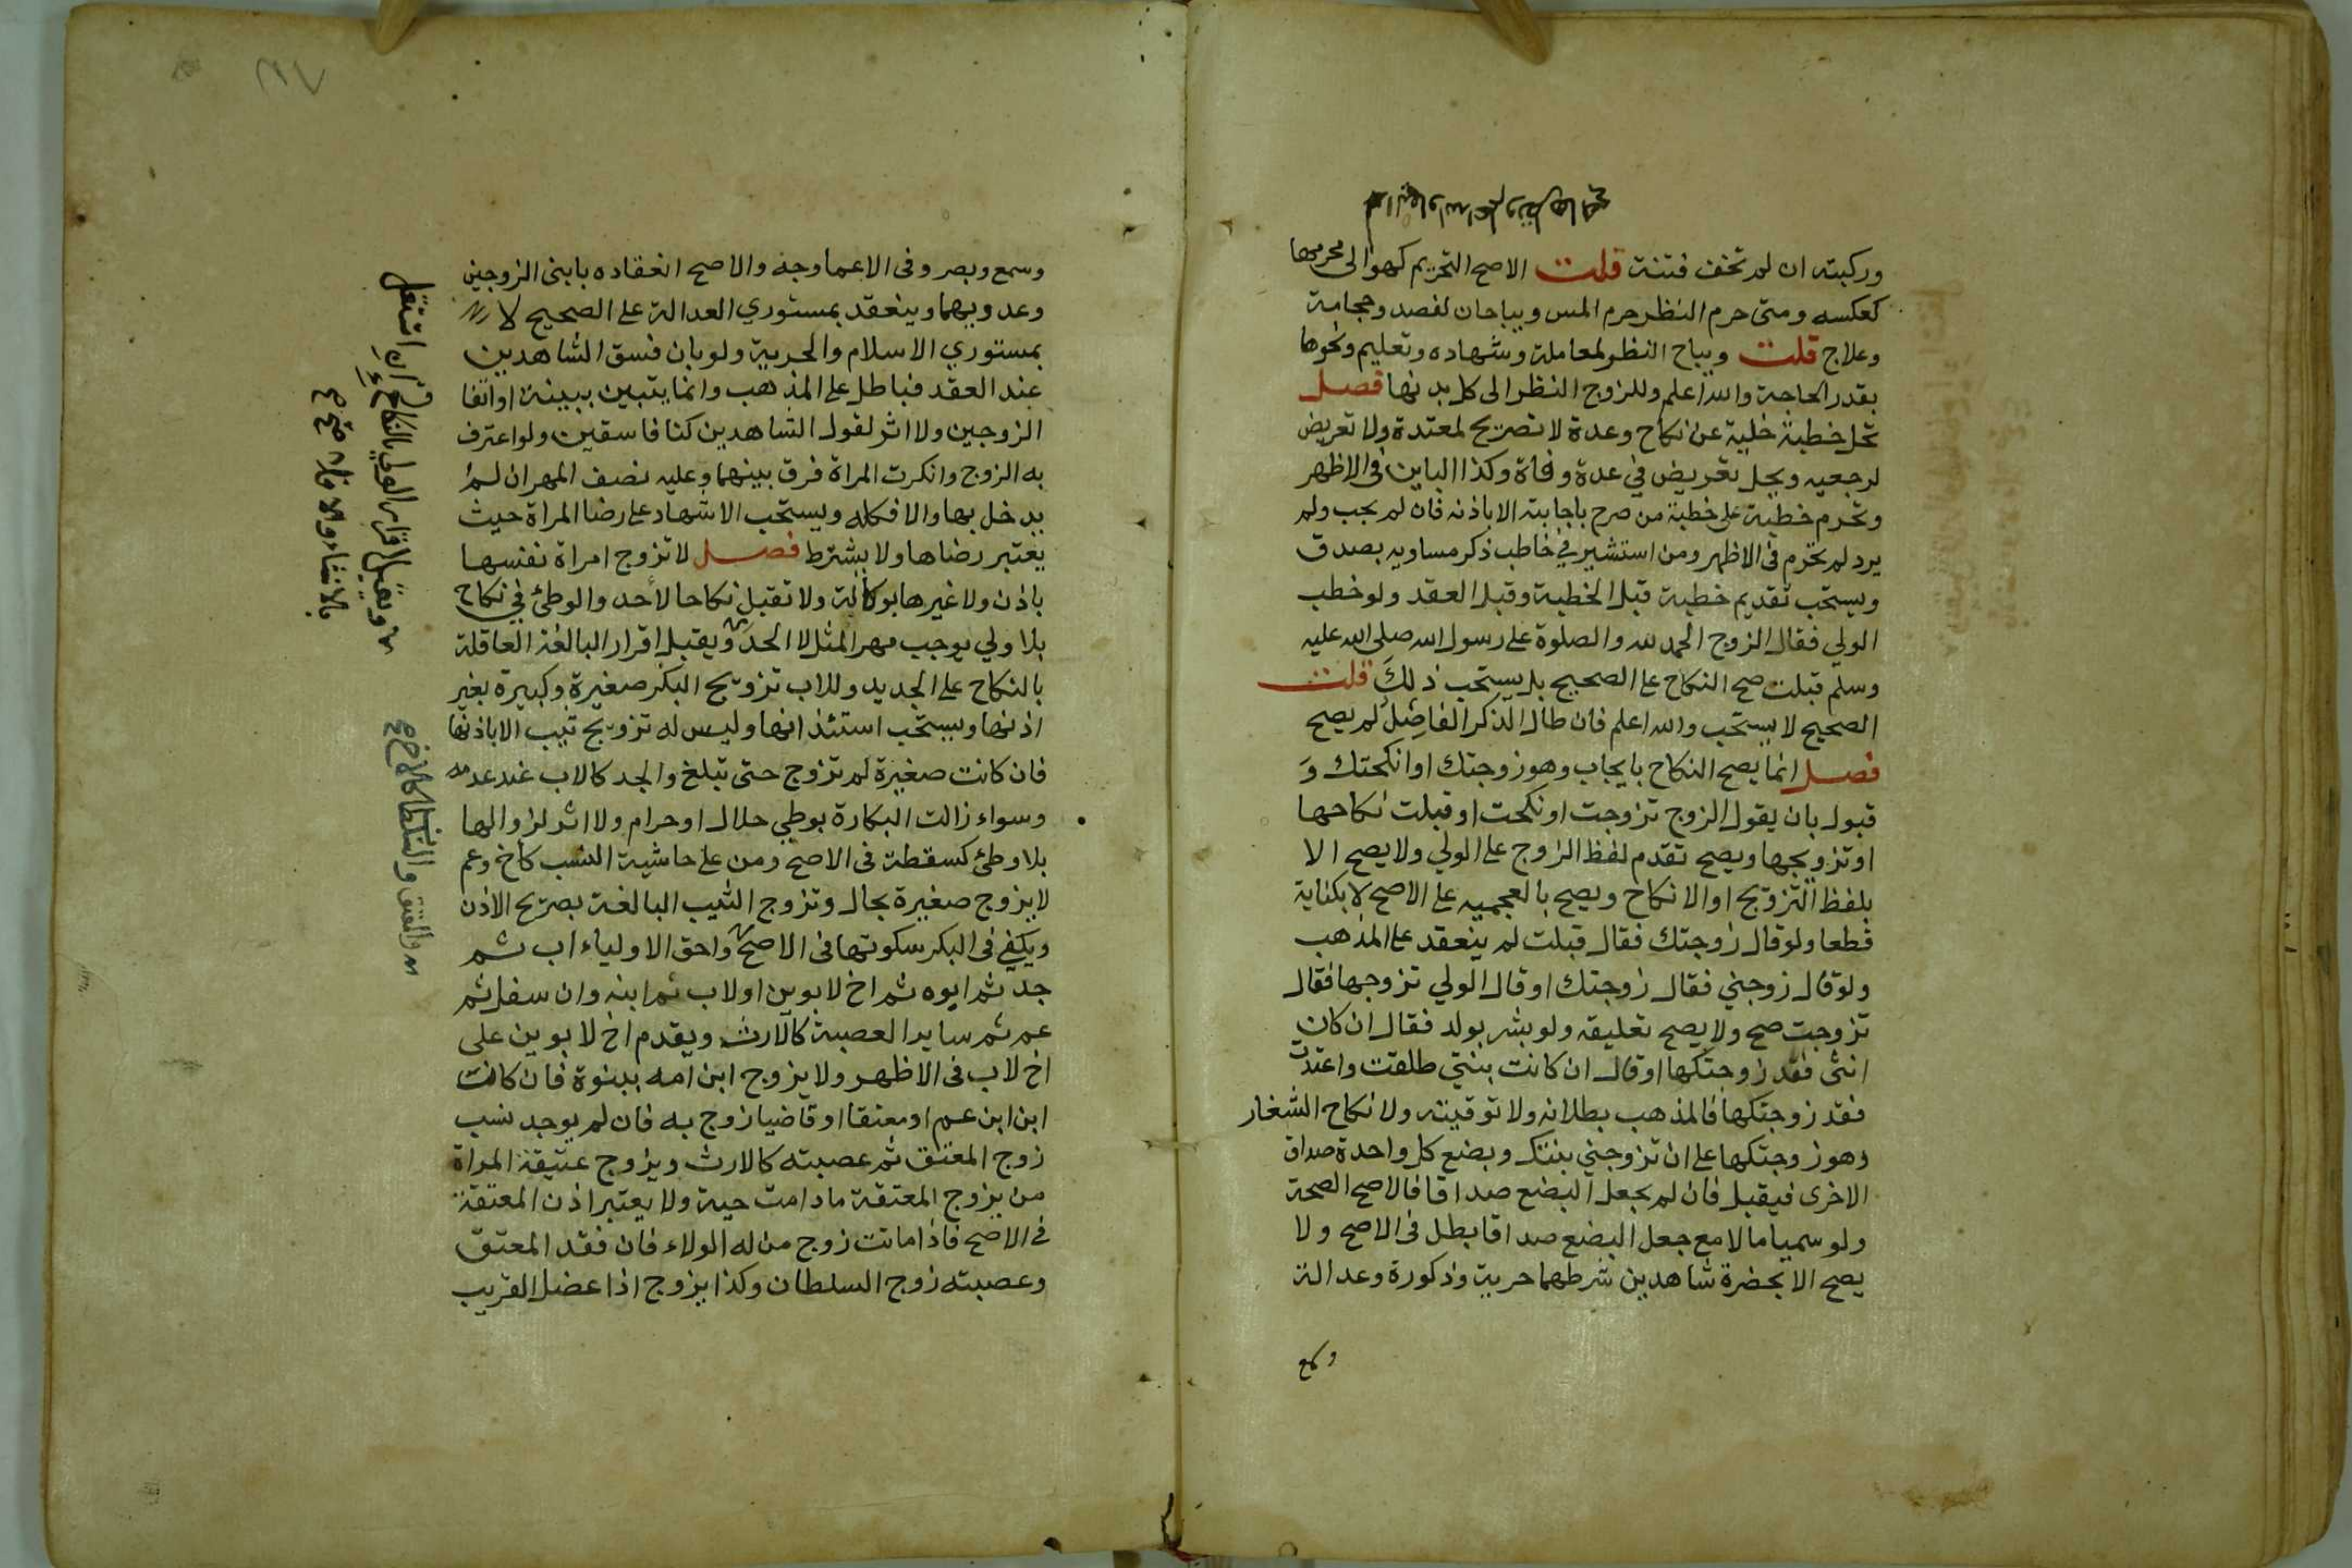 وركبته ان لم تخف فتنة قلت الاصح التحريم كهو الى محرمها
كعكسه ومتى حرم النظر حرم المس ويباحان لفصد وحجامة
وعلاج قلت ويباح النظر لمعاملة وشهاده وتعليم ونحوها
بقدر الحاجة والله اعلم وللزوج النظر الى كل بدنها فصل
تحل خطبة خلية عن نكاح وعدة لا تصريح لمعتدة ولا تعريض
لرجعيه ويحل تعريض في عدة وفاة وكذا الباين في الاظهر
وتحرم خطبة على خطبة من صرح باجابته الا باذنه فان لم يجب ولم
يرد لم تحرم في الاظهر ومن استشير في خاطب ذكر مساويه بصدق
ويستحب تقديم خطبة قبل الخطبة وقبل العقد ولو خطب
الولي فقال الزوج الحمد لله والصلوة على رسول الله صلى الله عليه
وسلم قبلت صح النكاح على الصحيح بل يستحب ذلك قلت
الصحيح لا يستحب والله اعلم فان طال الذكر الفاصل لم يصح
فصل انما يصح النكاح بايجاب وهو زوجتك او انكحتك و
قبول بان يقول الزوج تزوجت او نكحت او قبلت نكاحها
او تزويجها ويصح تقدم لفظ الزوج على الولي ولا يصح الا
بلفظ التزويج او الانكاح ويصح بالعجميه على الاصح لا بكناية
قطعا ولو قال زوجتك فقال قبلت لم ينعقد على المذهب
ولو قال زوجني فقال زوجتك او قال الولي تزوجها فقال
تزوجت صح ولا يصح تعليقه ولو بشر بولد فقال ان كان
انثى فقد زوجتكها او قال ان كانت بنتي طلقت واعتدت
فقد زوجتكها فالمذهب بطلانه ولا توقيته ولا نكاح الشغار
وهو زوجتكها على ان تزوجني بنتك وبضع كل واحدة صداق
الاخرى فيقبل فان لم يجعل البضع صداقا فالاصح الصحة
ولو سميا مالا مع جعل البضع صداقا بطل في الاصح ولا
يصح الا بحضرة شاهدين شرطهما حرية وذكورة وعدالة
وسمع
وسمع وبصر وفي الاعما وجه والاصح انعقاده بابني الزوجين
وعدويهما وينعقد بمستوري العدالة على الصحيح لا
بمستوري الاسلام والحرية ولو بان فسق الشاهدين
عند العقد فباطل على المذهب وانما يتبين ببينة او اتفاق
الزوجين ولا اثر لقول الشاهدين كنا فاسقين ولو اعترف
به الزوج وانكرت المراة فرق بينهما وعليه نصف المهر ان لم
يدخل بها والا فكله ويستحب الاشهاد على رضا المراة حيث
يعتبر رضاها ولا يشترط فصل لا تزوج امراة نفسها
باذن ولا غيرها بوكالة ولا تقبل نكاحا لأحد والوطئ في نكاح
بلا ولي يوجب مهر المثل لا الحد ويقبل اقرار البالغة العاقلة
بالنكاح على الجديد وللاب تزويج البكر صغيرة وكبيرة بغير
اذنها ويستحب استئذانها وليس له تزويج ثيب الا باذنها
فان كانت صغيرة لم تزوج حتى تبلغ والجد كالاب عند عدمه
وسواء زالت البكارة بوطي حلال او حرام ولا اثر لزوالها
بلا وطئ كسقطة في الاصح ومن على حاشية النسب كاخ وعم
لا يزوج صغيرة بحال وتزوج الثيب البالغة بصريح الاذن
ويكفي في البكر سكوتها في الاصح واحق الاولياء اب ثم
جد ثم ابوه ثم اخ لابوين او لاب ثم ابنه وان سفل ثم
عم ثم ساير العصبة كالارث ويقدم اخ لابوين على
اخ لاب في الاظهر ولا يزوج ابن امه ببنوة فان كانت
ابن ابن عم او معتقا او قاضيا زوج به فان لم يوجد نسب
زوج المعتق ثم عصبته كالارث ويزوج عتيقة المراة
من يزوج المعتقة مادامت حية ولا يعتبر اذن المعتقة
في الاصح فاذا ماتت زوج من له الولاء فان فقد المعتق
وعصبته زوج السلطان وكذا يزوج اذا عضل القريب
ويقبل اقرار الولي بالنكاح ان استقل
بالانشاء والا فلا صح
والمعتق والسلطان كالاخ صح